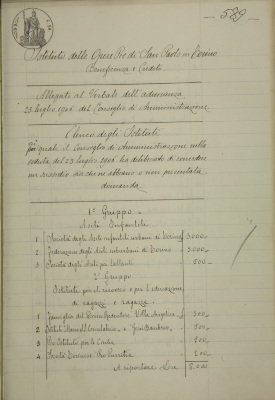 529
Istituto delle Opere Pie di San Paolo in Torino
Beneficenza e Credito
Allegati al Verbale dell'adunanza
23 luglio 1906 del Consiglio di Amministrazione
Elenco degli Istituti
quali il Consiglio di Amministrazione nella
seduta del 23 luglio 1906 ha deliberato di concedere
un sussidio sia che ne abbiano o non presentata
domanda.
1° Gruppo
Asili Infantili
1 Società degli Asili infantili urbani di Torino 3.000
2 Federazione degli Asili suburbani di Torino 3.000
3 Società degli Asili pei lattanti 500
2° Gruppo
Istituti per il ricovero e per l'educazione
di ragazzi e ragazze
1 Famiglia del Divin Redentore Villa Angelica 300
2 Istituto 200
3 Pio Istituto per le 200
4 Società Torinese Pro Pueritia 200
A riportare Lire